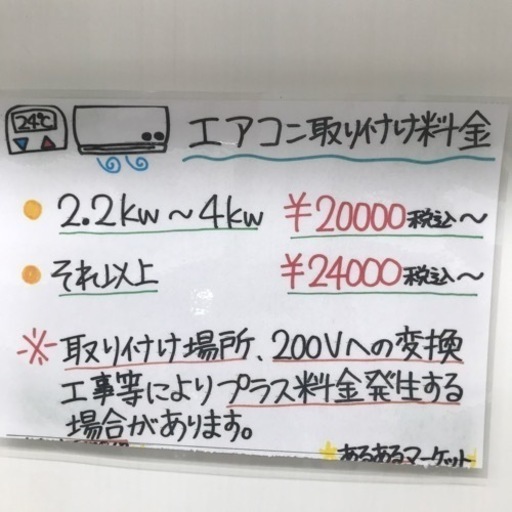 24℃
エアコン取り付け料金
2.2kw～4kw ¥20000税込～
それ以上 ¥24000税込～
※取り付け場所、200Vへの変換
工事等によりプラス料金発生する
場合があります。
あるあるマーケット